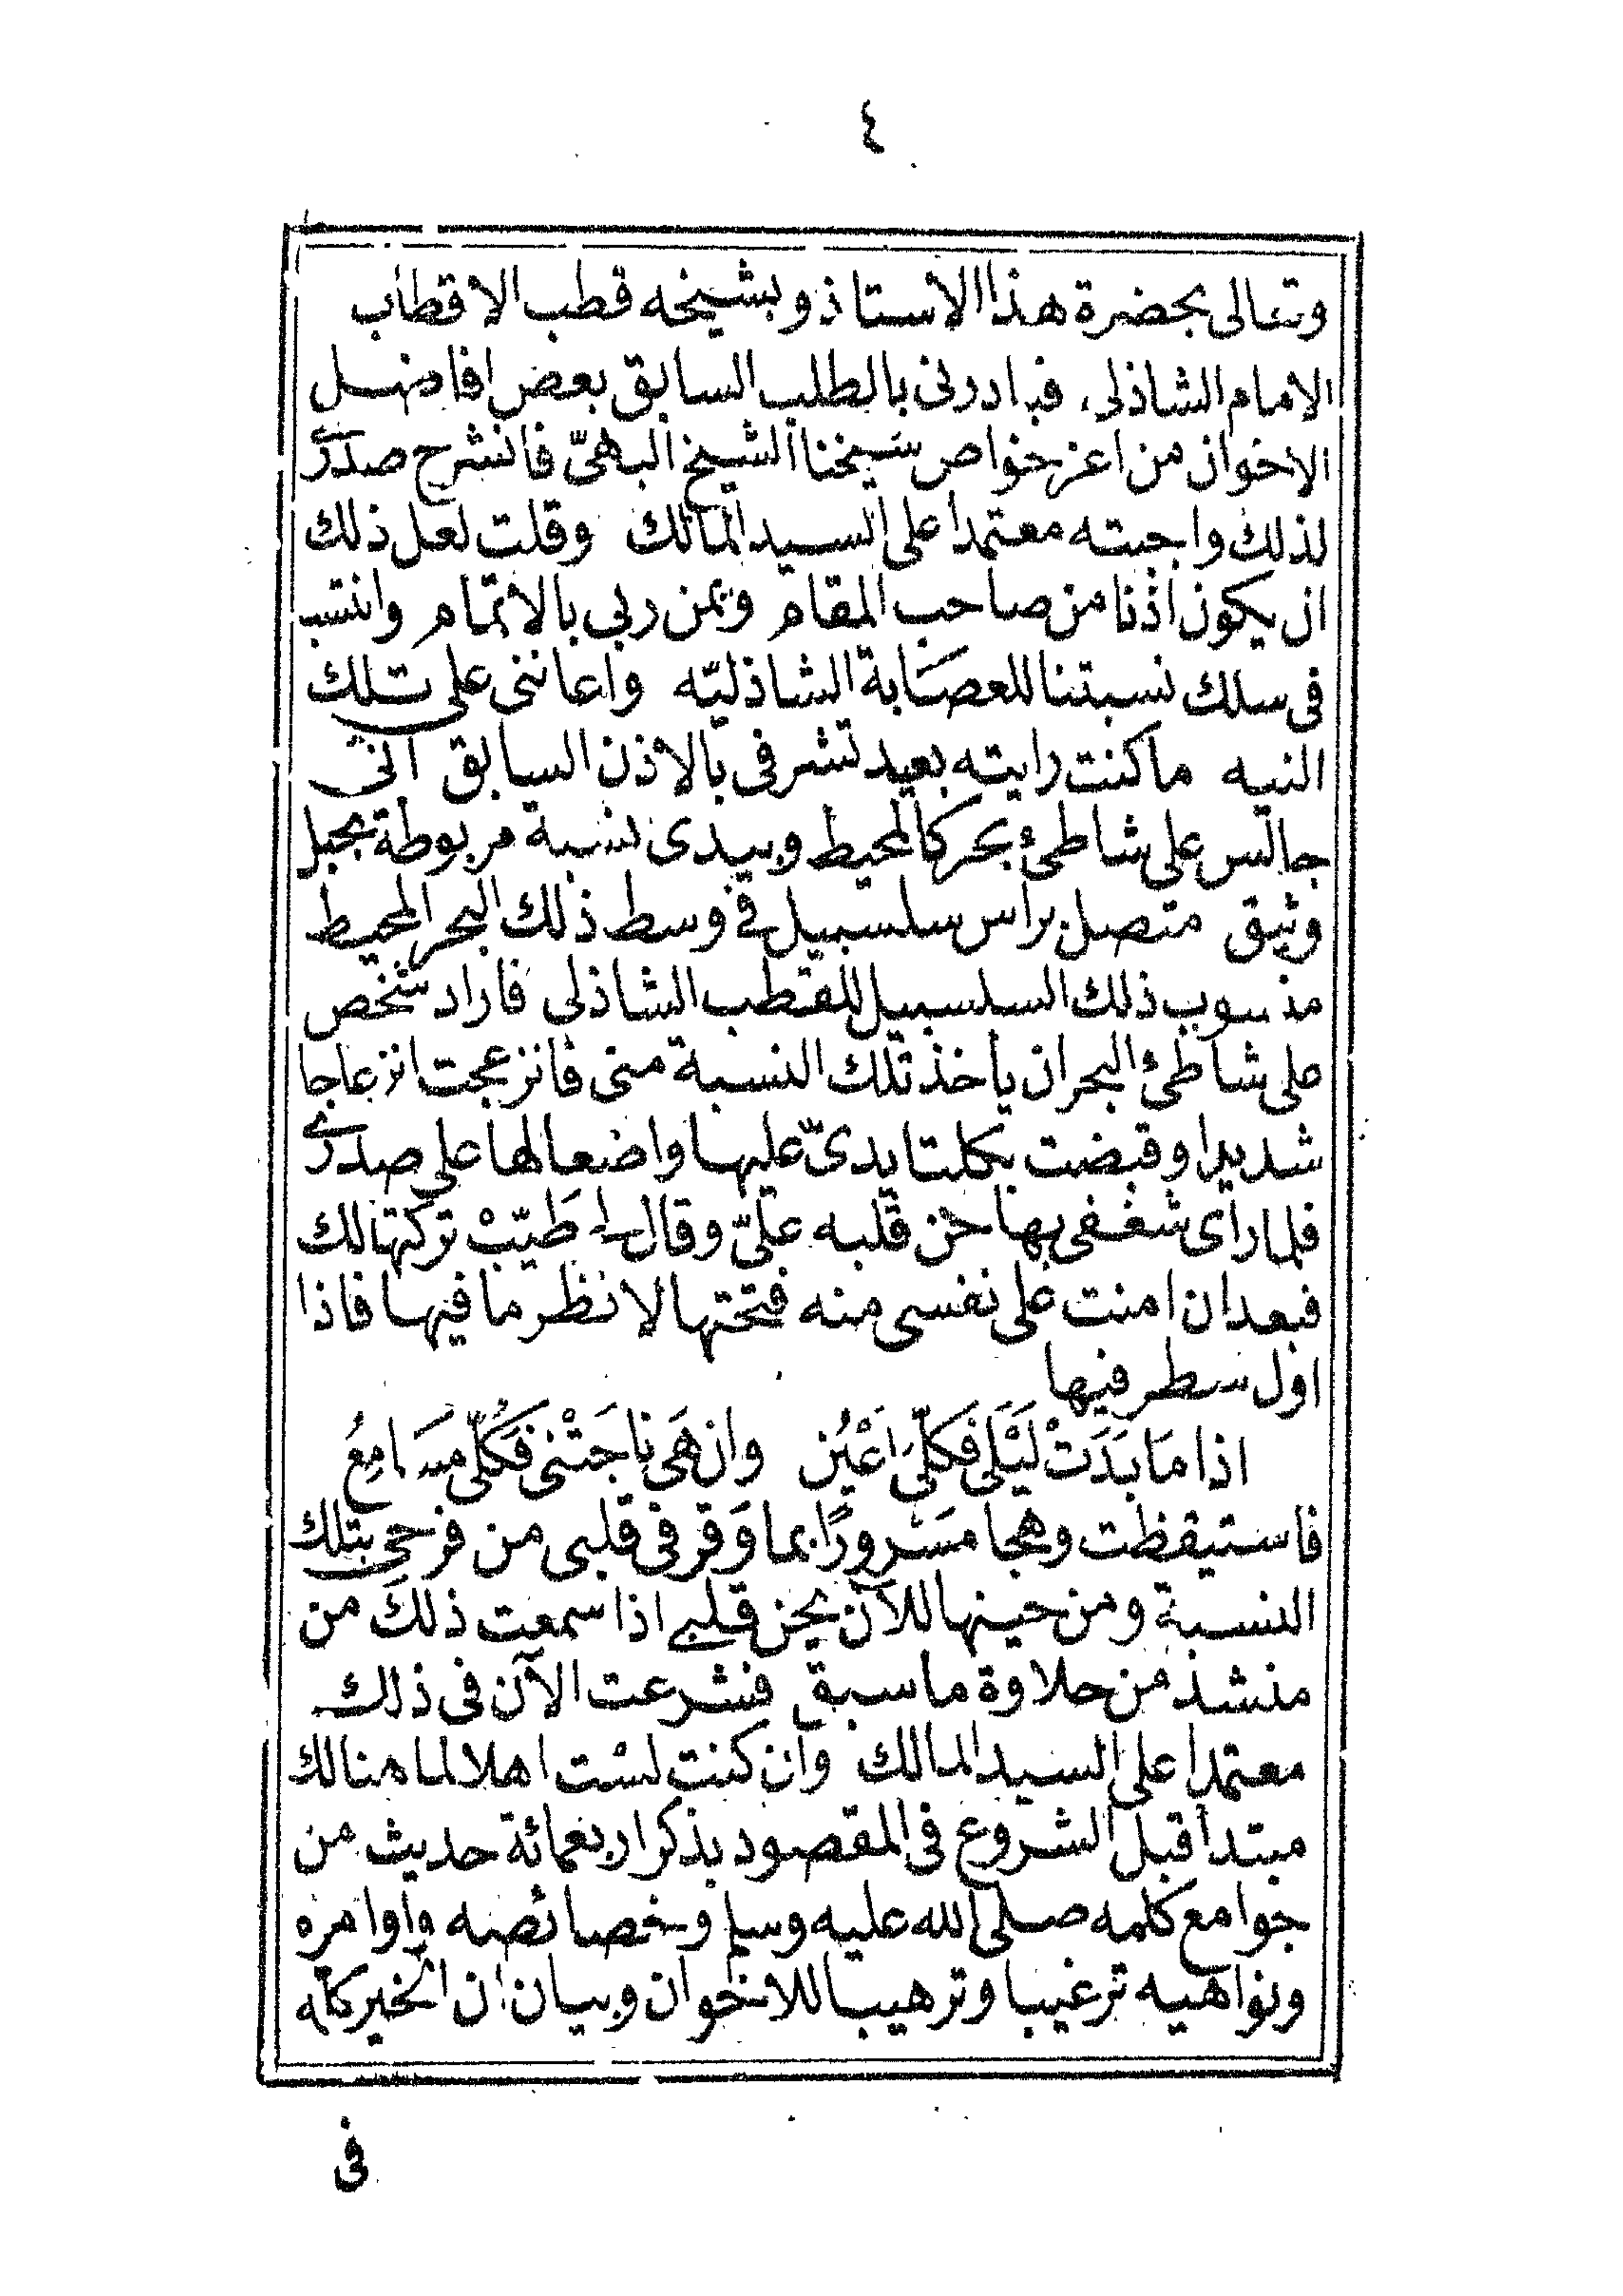 ٤
وتعالى بحضرة هذا الاستاذ وبشيخه قطب الاقطاب
الامام الشاذلى، فبادرنى بالطلب السابق بعض افاضل
الاخوان من اعز خواص شيخنا الشيخ البهىّ فانشرح صدرى
لذلك واجبته معتمدا على السيد المالك وقلت لعل ذلك
ان يكون اذنا من صاحب المقام ويمن ربى بالاتمام وانتسب
فى سلك نسبتنا للعصَابة الشاذليّه واعاننى على تلك
النيه ما كنت رايته بعيد تشرفى بالاذن السابق انى
جالس على شاطئ بحر كالمحيط وبيدى نسبة مربوطة بحبل
وثيق متصل براس سلسبيل فى وسط ذلك البحر المحيط
منسوب ذلك السلسبيل للقطب الشاذلى فاراد شخص
على شاطئ البحر ان ياخذ تلك النسبة منى فانزعجت انزعاجا
شديدا وقبضت بكلتا يدىّ عليها واضعا لها على صدرى
فلما راى شغفى بها حن قلبه علىّ وقال لى طَيّبْ تركتها لك
فبعد ان امنت على نفسى منه فتحتها لانظر ما فيها فاذا
اول سطر فيها
اذا مَا بَدَتْ لَيْلَى فَكُلِّى اَعْيُن وان هَى نَاجَتْنى فَكُلِّى مَسَامِعُ
فاستيقظت وهجا مَسْرورًا بما وَقر فى قلبى من فرحى بتلك
النسبة ومن حينها للآن يحن قلبى اذا سمعت ذلكَ من
منشد من حلاوة ما سبق فشرعت الآن فى ذلك
معتمدا على السيد المالك وان كنت لست اهلا لما هنالك
مبتدأ قبل الشروع فى المقصود بذكر اربعمائة حديث من
جوامع كلمه صلى الله عليه وسلم وخصائصه واوامره
ونواهيه ترغيبا وترهيبا للاخوان وبيان ان الخير كله
فى